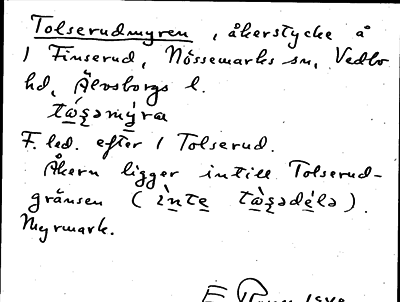 Tolserudmyren, åkerstycke å
1 Finserud, Nössemarks sn, Vedbo
hd, Älvsborgs l.
tὼʂəmýra
F. led. efter 1 Tolserud.
Åkern ligger intill Tolserud-
gränsen (ìnte tὼʂədélə).
Myrmark.